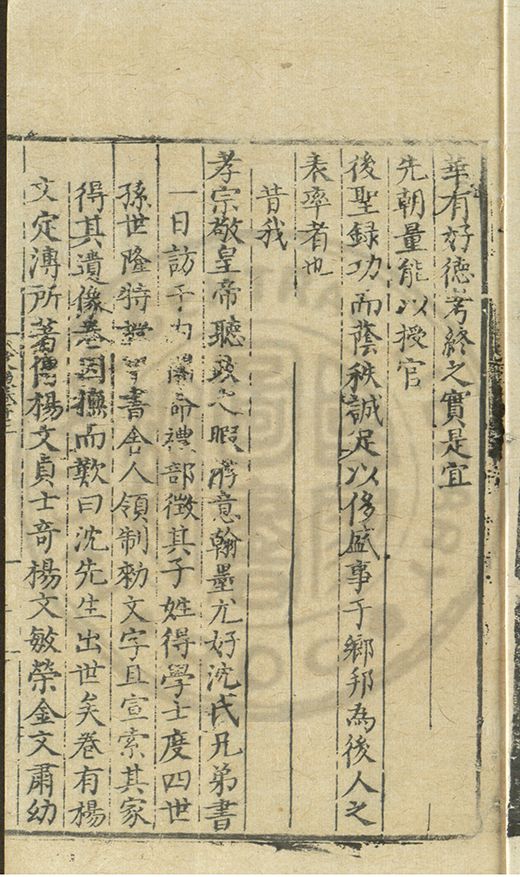 華有好德考終之實是宜
先朝量能以授官
後聖録功而蔭秩誠足以侈盛事于鄉邦為後人之
表率者也
昔我
孝宗敬皇帝聽政之暇游意翰墨尤好沈氏兄弟書
一日訪于内閣命禮部徵其子姓得學士度四世
孫世隆特授中書舍人領制勅文字且宣索其家
得其遺像巻因撫而歎曰沈先生出世矣巻有楊
文定溥所著傳楊文貞士奇楊文敏榮金文肅幼